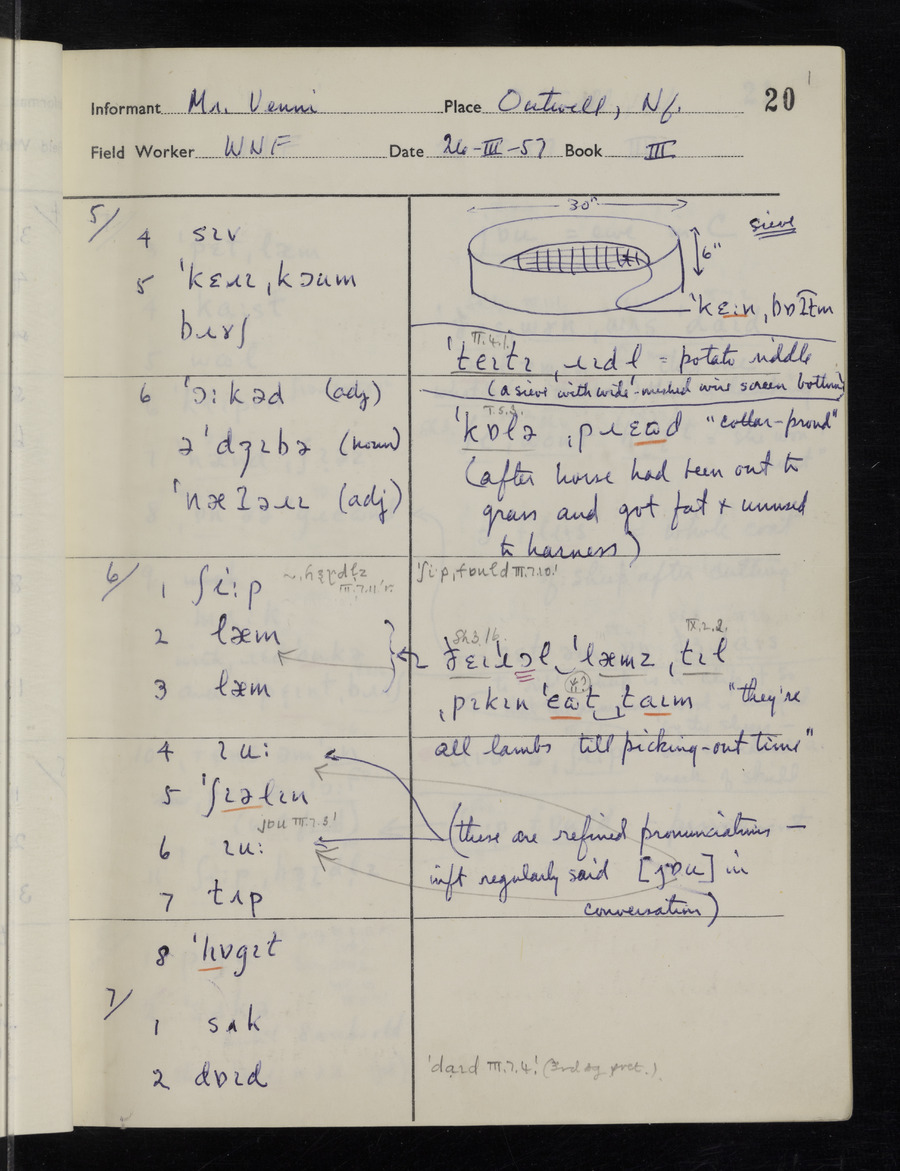 Informant Mr. Venni Place Outwell, Nf. 20
Field Worker WNF Date 26-III-57 Book III
5/
4 sɪv
5 ˈkɛɹɪ ˌkɔum
bɹɤʃ
30"
6"
sieve
ˈkɛːn ˌbɒʔtm
II.4.1.
ˈtɛɪtɪ ˌɹɪdl = potato riddle
(a sieve with wide-meshed wire screen bottom)
6 ˈɔːkəd (adj)
ə ˈdʒɪbə (noun)
(adj)
I.5.
ˈkɒlə ˌpɹɛəd "collar-proud"
(after horse had been out to
grass and got fat & unused
to harness)
6/
1 ʃiːp
III.7.11.
III.7.10!
2 læm
3 læm
IX.2.2.
ˈlæmz ˌtɪl
ˌpɪkɪn ˈɛət ˌtaɪm "they're
all lambs till picking-out time"
4 ɪuː
5 ˈʃɪəlɪn
jɒu III.7.3!
6 ɪuː
7 tʌp
(these are refined pronunciations –
inft regularly said [jɒu] in
conversation)
8 ˈhɒgɪt
7/
1 sʌk
2 dɒɪd
ˈdaɪd III.7.4! (3rd sg pret.)